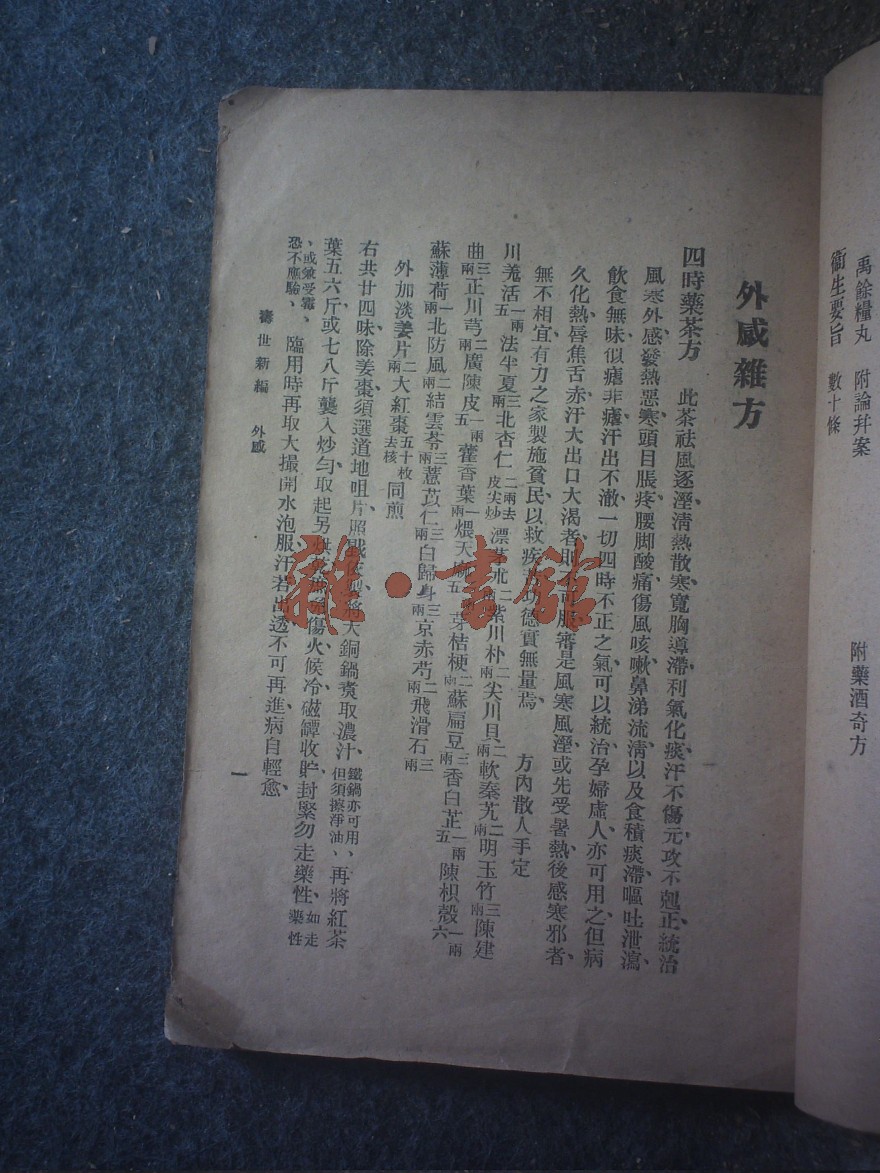 禹餘糧丸 附論幷案
衞生要旨 數十條 附藥酒奇方
外感雜方
四時藥茶方 此茶祛風逐溼、清熱散寒、寬胸導滯、利氣化痰、汗不傷元、攻不尅正、統治
風寒外感、發熱惡寒、頭目脹疼、腰脚酸痛、傷風咳嗽、鼻涕流清、以及食積痰滯、嘔吐泄瀉、
飲食無味、似瘧非瘧、汗出不澈、一切四時不正之氣、可以統治、孕婦虛人、亦可用之、但病
久化熱、唇焦舌赤、汗大出口大渴者、則不可服、審是風寒風溼、或先受暑熱、後感寒邪者、
無不相宜、有力之家、製施貧民、以救疾苦、功德實無量焉、 方內散人手定
川羌活一兩五 法半夏三兩 北杏仁二兩去皮尖炒 漂 朮二兩 紫川朴二兩 尖川貝二兩 軟秦艽二兩 明玉竹三兩 陳建
曲三兩 正川芎二兩 廣陳皮一兩五 藿香葉一兩 煨天 五 芽桔梗二兩 蘇扁豆三兩 香白芷一兩五 陳枳殼一兩六
蘇薄荷一兩 北防風二兩 結雲苓三兩 薏苡仁三兩 白歸身三兩 京赤芍二兩 飛滑石三兩
外加淡姜片二兩 大紅棗五十枚去核 同煎
右共廿四味、除姜棗、須選道地咀片、照戥 製、將大銅鍋煑取濃汁、鐵鍋亦可用、但須擦淨油、再將紅茶
葉五六斤、或七八斤、襲入炒勻、取起另烘乾 傷火、候冷磁罈收貯、封緊勿走藥性、如走藥性
、或兼受霉、恐不應驗、 臨用時再取大撮開水泡服、汗若出透、不可再進、病自輕愈、
壽世新編 外感 一
雜·書館